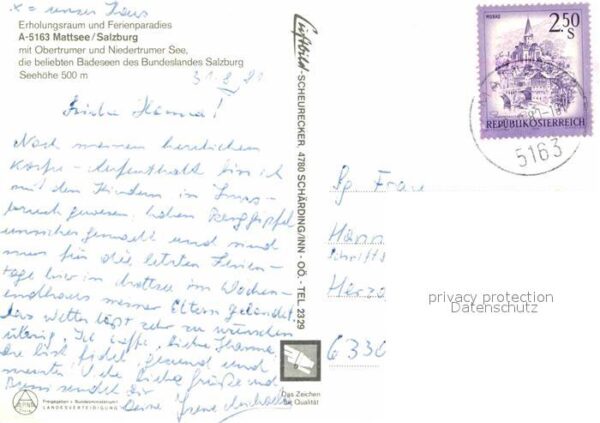 x = unser Haus
Erholungsraum und Ferienparadies
A-5163 Mattsee/Salzburg
mit Obertrumer und Niedertrumer See,
die beliebten Badeseen des Bundeslandes Salzburg
Seehöhe 500 m
31.8.81
Liebe Hanna!
Nach meinem herrlichen
Aufenthalt bin ich
mit den Kindern in Inns-
bruck gewesen, haben Berggipfel
unsicher gemacht und sind
nun für die letzten Ferien-
tage hier in Mattsee im Wochen-
endhaus meiner Eltern gelandet.
Das Wetter läßt sehr zu wünschen
übrig. Ich hoffe, liebe Hanna,
Du bist fidel, gesund und
munter. Viele liebe Grüße und
Bussi sendet Dir
Deine Irene
Freigegeben v. Bundesministerium f.
LANDESVERTEIDIGUNG
Luftbild-SCHEURECKER, 4780 SCHÄRDING/INN - OÖ. - TEL. 2329
Das Zeichen
für Qualität
MURAU
2.50
S
REPUBLIK ÖSTERREICH
5163
Frau
Hann
Schrifts
Herzo
6330
privacy protection
Datenschutz